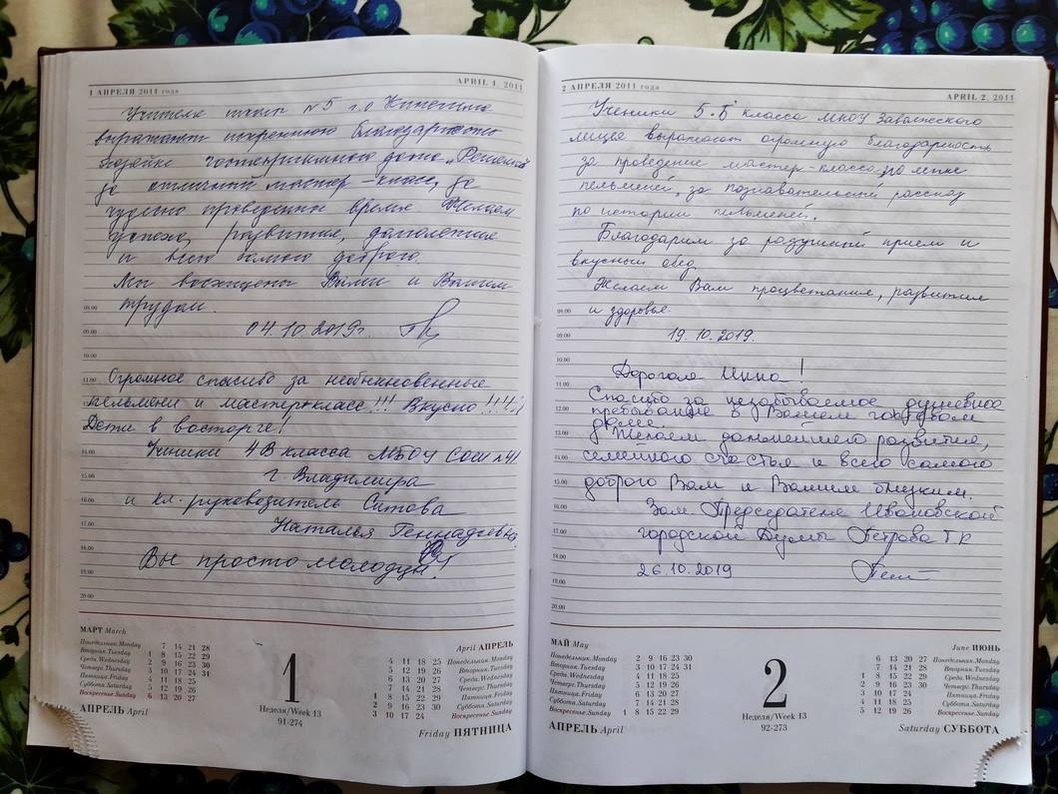 1 АПРЕЛЯ 2011 года
APRIL 1, 2011
Учителя школы №5 г.о Кинешма
выражают искреннюю благодарность
хозяйке гостеприимного дома „Решма"
за отличный мастер-класс, за
чудесно проведенное время. Желаем
успеха, развития, долголетия
и всего самого доброго.
Мы восхищены Вами и Вашим
трудом.
04.10.2019г.
Огромное спасибо за необыкновенные
пельмени и мастер-класс!!! Вкусно!!!!!
Дети в восторге!
Ученики 4В класса МБОУ СОШ №41
г. Владимира
и кл. руководитель Ситова
Наталья Геннадьевна.
Вы просто молодцы!
09.00
10.00
11.00
14.00
15.00
16.00
17.00
18.00
19.00
20.00
МАРТ March
Понедельник.Monday 7 14 21 28
Вторник.Tuesday 1 8 15 22 29
Среда.Wednesday 2 9 16 23 30
Четверг.Thursday 3 10 17 24 31
Пятница.Friday 4 11 18 25
Суббота.Saturday 5 12 19 26
Воскресенье.Sunday 6 13 20 27
АПРЕЛЬ April
1
Неделя/Week 13
91-274
April АПРЕЛЬ
4 11 18 25 Понедельник.Monday
5 12 19 26 Вторник.Tuesday
6 13 20 27 Среда.Wednesday
7 14 21 28 Четверг.Thursday
1 8 15 22 29 Пятница.Friday
2 9 16 23 30 Суббота.Saturday
3 10 17 24 Воскресенье.Sunday
Friday ПЯТНИЦА
2 АПРЕЛЯ 2011 года
APRIL 2, 2011
Ученики 5 "Б" класса МКОУ Заволжского
лицея выражают огромную благодарность
за проведение мастер-класса по лепке
пельменей, за познавательный рассказ
по истории пельменей.
Благодарим за радушный прием и
вкусный обед.
Желаем Вам процветания, развития
и здоровья.
19.10.2019.
Дорогая Инна!
Спасибо за незабываемое душевное
пребывание в Вашем гостевом
доме.
Желаем дальнейшего развития,
семейного счастья и всего самого
доброго Вам и Вашим близким.
Зам. Председателя Ивановской
городской Думы Петрова Т.К
26.10.2019
09.00
10.00
11.00
12.00
13.00
14.00
15.00
16.00
17.00
18.00
19.00
20.00
МАЙ May
Понедельник.Monday 2 9 16 23 30
Вторник.Tuesday 3 10 17 24 31
Среда.Wednesday 4 11 18 25
Четверг.Thursday 5 12 19 26
Пятница.Friday 6 13 20 27
Суббота.Saturday 7 14 21 28
Воскресенье.Sunday 1 8 15 22 29
АПРЕЛЬ April
2
Неделя/Week 13
92-273
June ИЮНЬ
6 13 20 27 Понедельник.Monday
7 14 21 28 Вторник.Tuesday
1 8 15 22 29 Среда.Wednesday
2 9 16 23 30 Четверг.Thursday
3 10 17 24 Пятница.Friday
4 11 18 25 Суббота.Saturday
5 12 19 26 Воскресенье.Sunday
Saturday СУББОТА